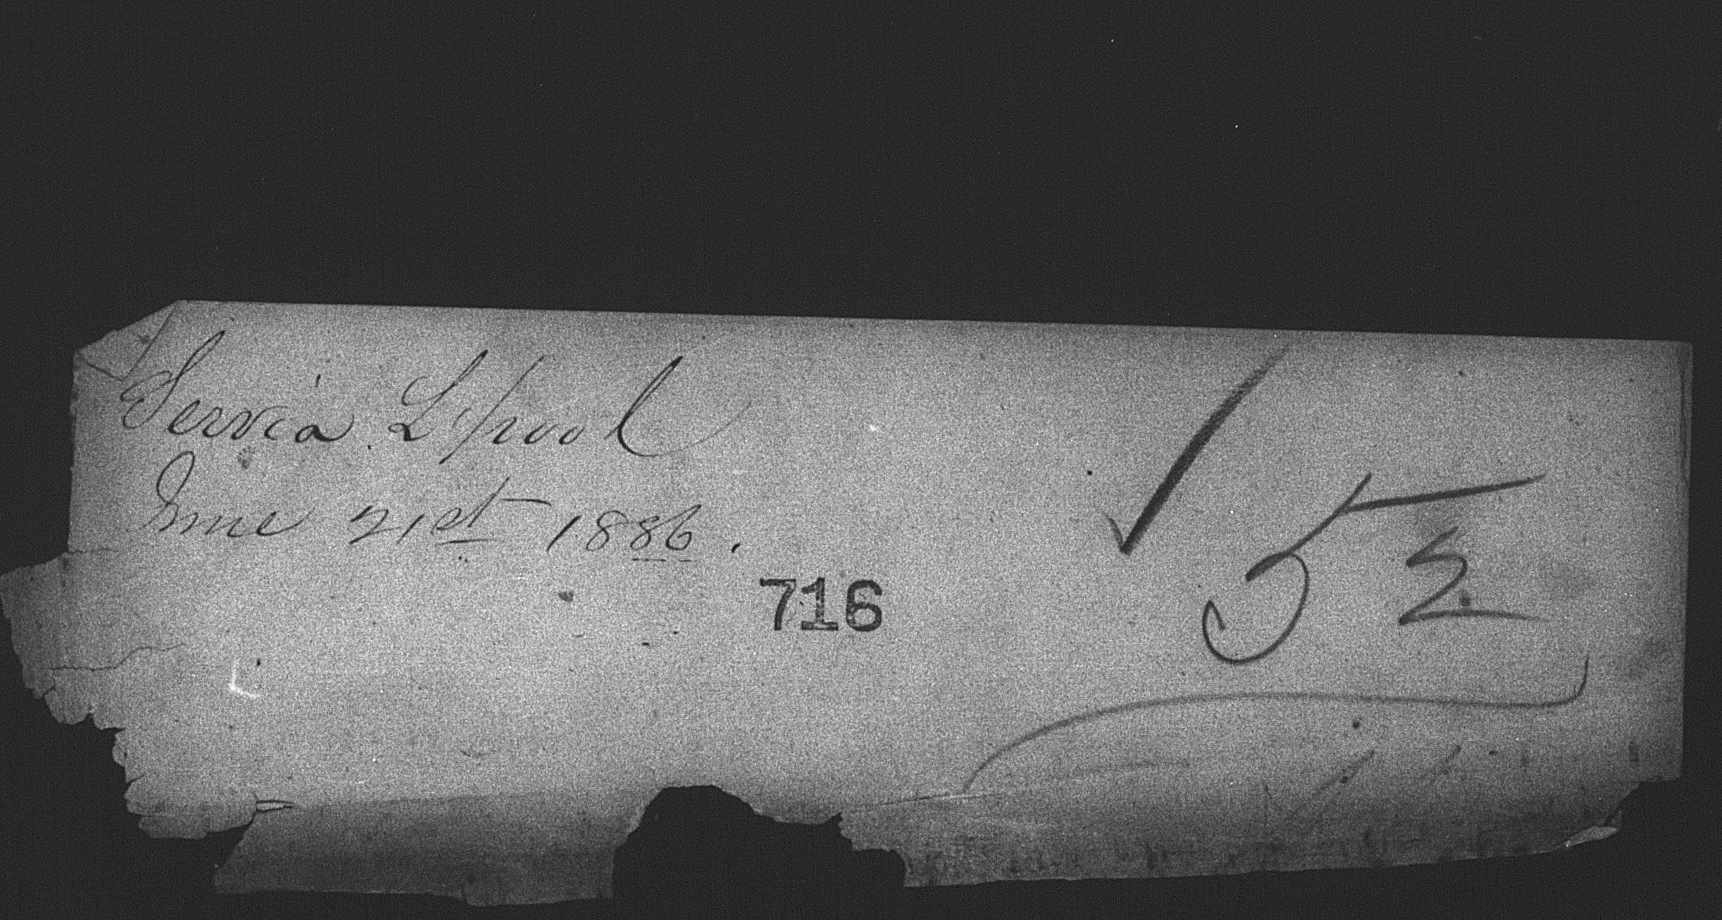 Servia L'pool
June 21st 1886.
716
52